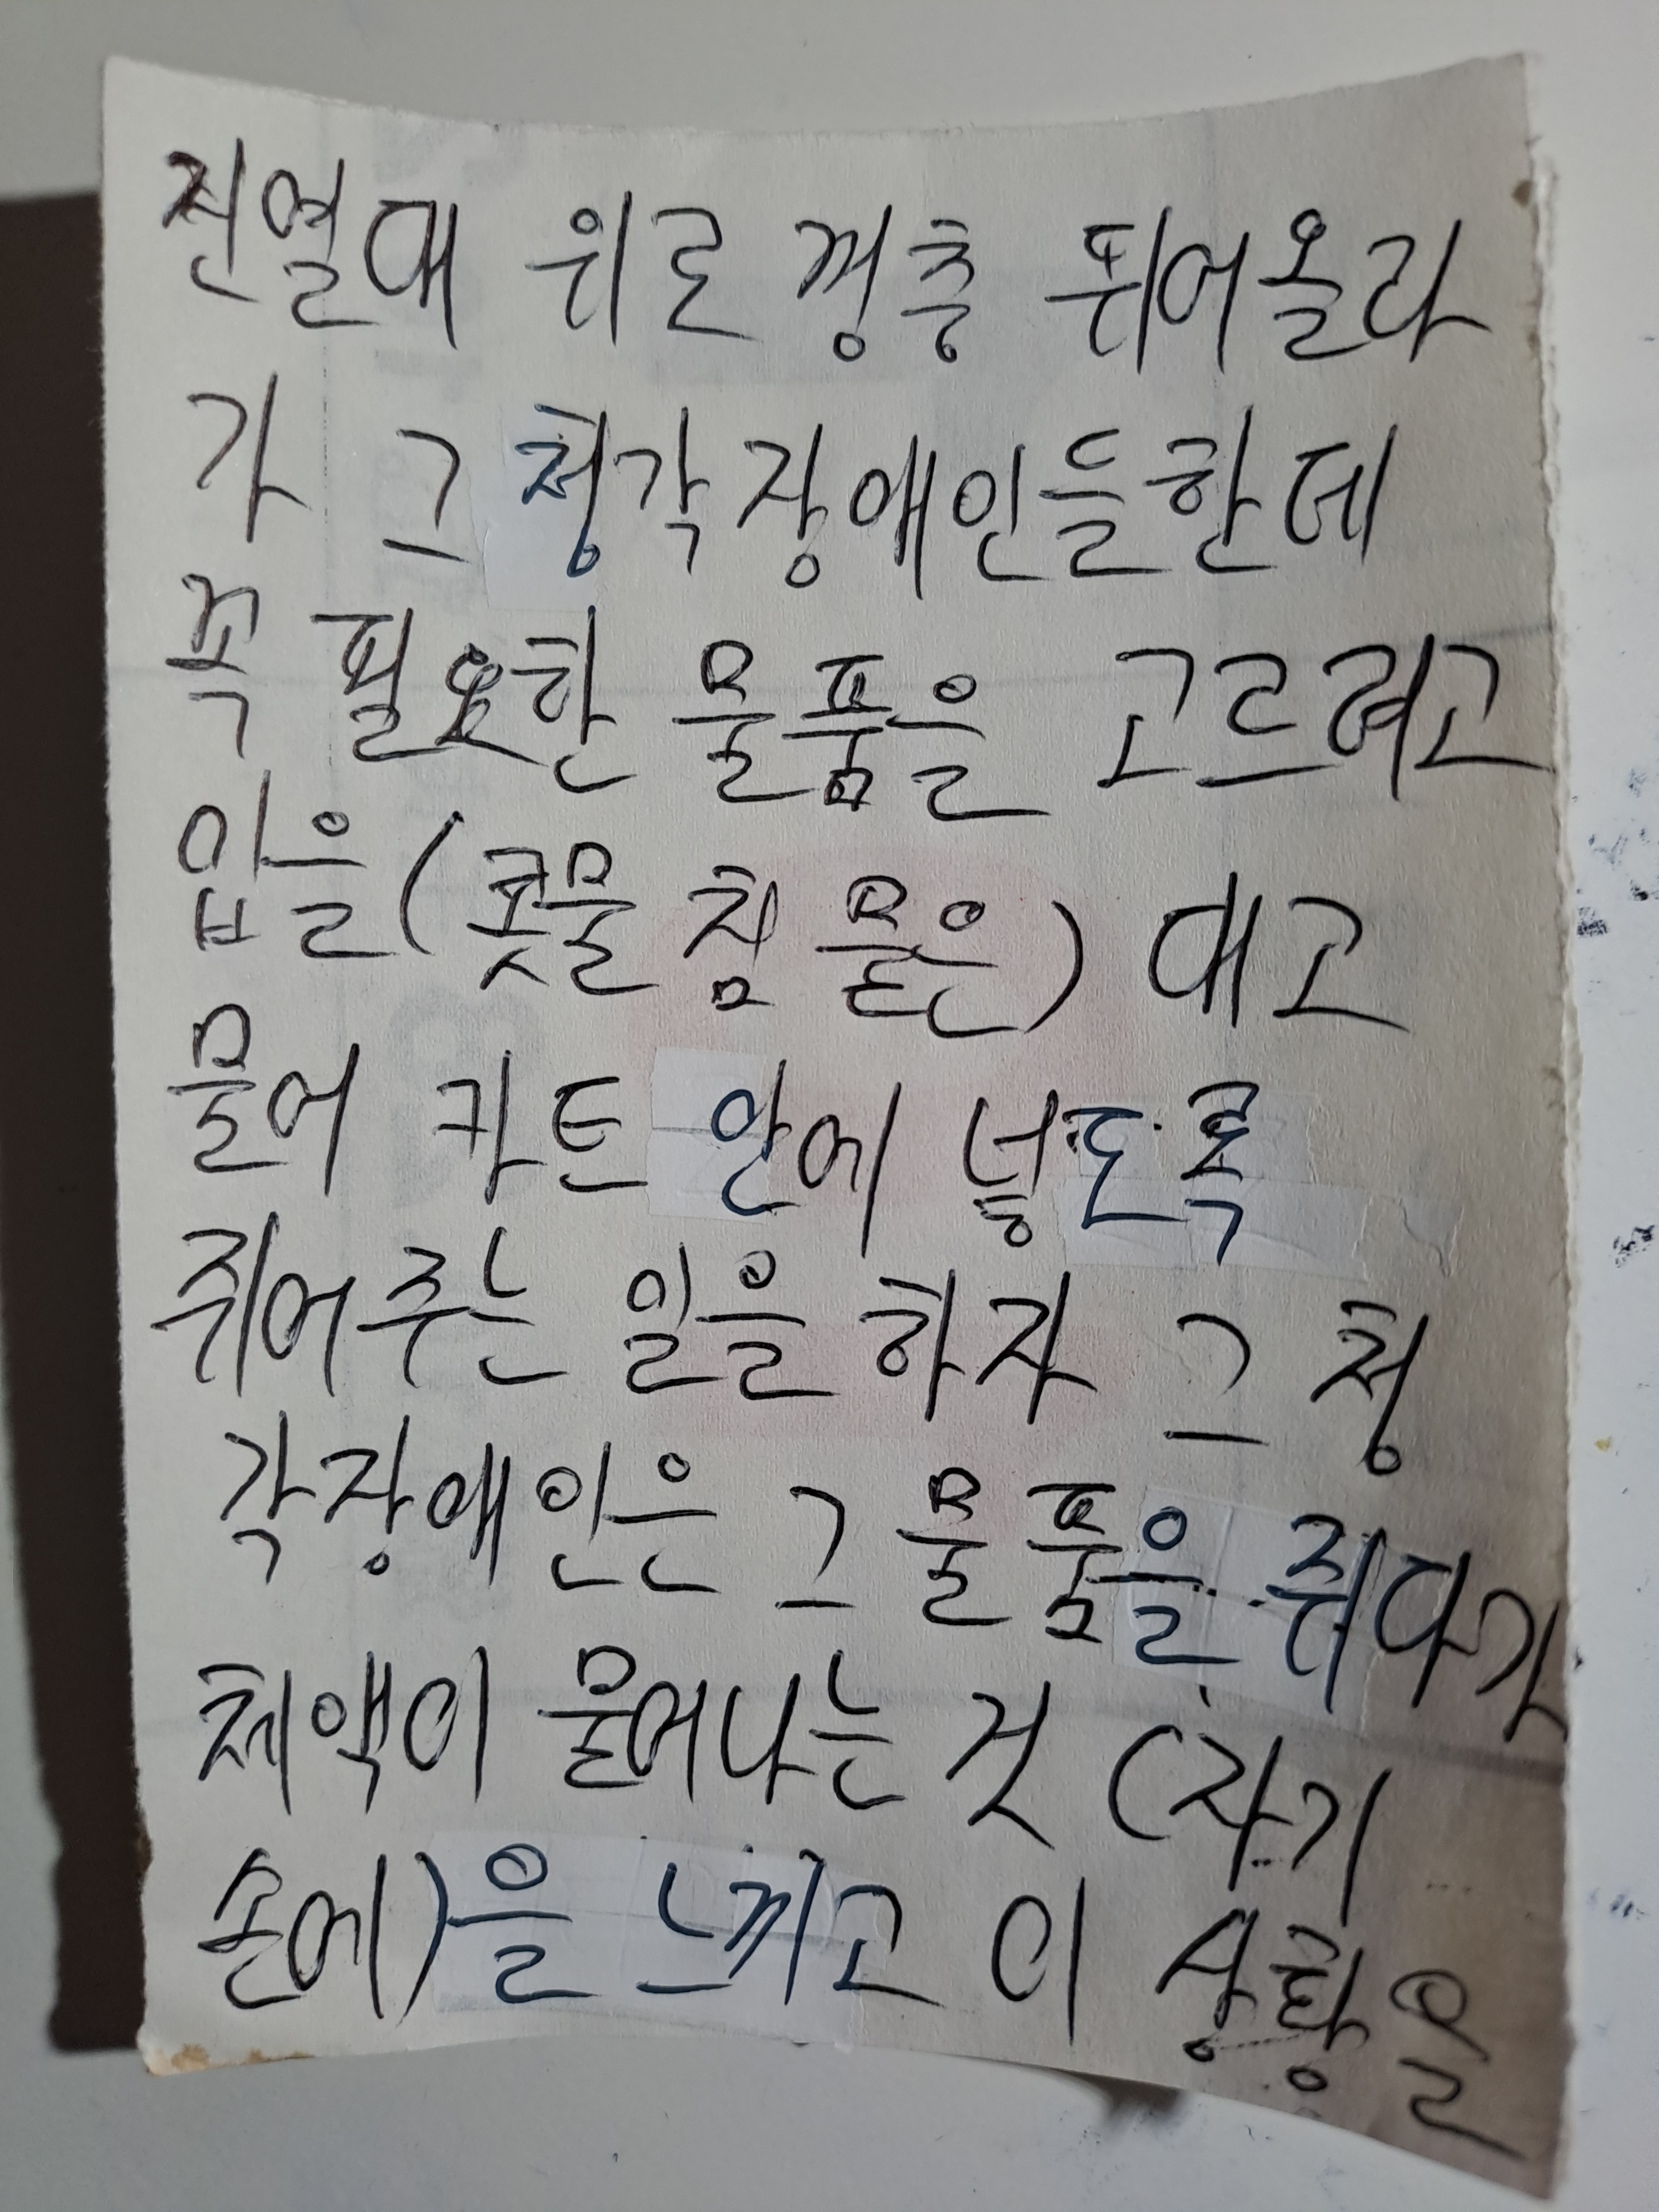 진열대 위로 껑충 뛰어올라
가 그 청각장애인들한데
꼭 필요한 물품을 고르려고
입을 (콧물 침 물은) 대고
물어 카트 안에 넣도록
쥐어 주는 일을 하자 그 청
각장애인은 그 물품을 쥐다가
체액이 묻어나는 것 (자기
손에)을 느끼고 이 상황을